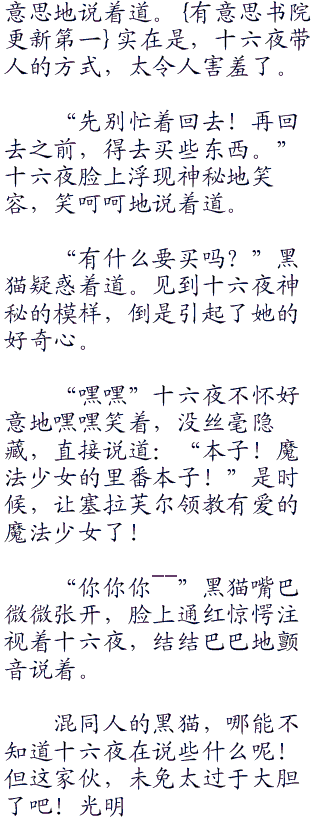 意思地说着道。{有意思书院
更新第一}实在是，十六夜带
人的方式，太令人害羞了。
“先别忙着回去！再回
去之前，得去买些东西。”
十六夜脸上浮现神秘地笑
容，笑呵呵地说着道。
“有什么要买吗？”黑
猫疑惑着道。见到十六夜神
秘的模样，倒是引起了她的
好奇心。
“嘿嘿”十六夜不怀好
意地嘿嘿笑着，没丝毫隐
藏，直接说道：“本子！魔
法少女的里番本子！”是时
候，让塞拉芙尔领教有爱的
魔法少女了！
“你你你――”黑猫嘴巴
微微张开，脸上通红惊愕注
视着十六夜，结结巴巴地颤
音说着。
混同人的黑猫，哪能不
知道十六夜在说些什么呢！
但这家伙，未免太过于大胆
了吧！光明